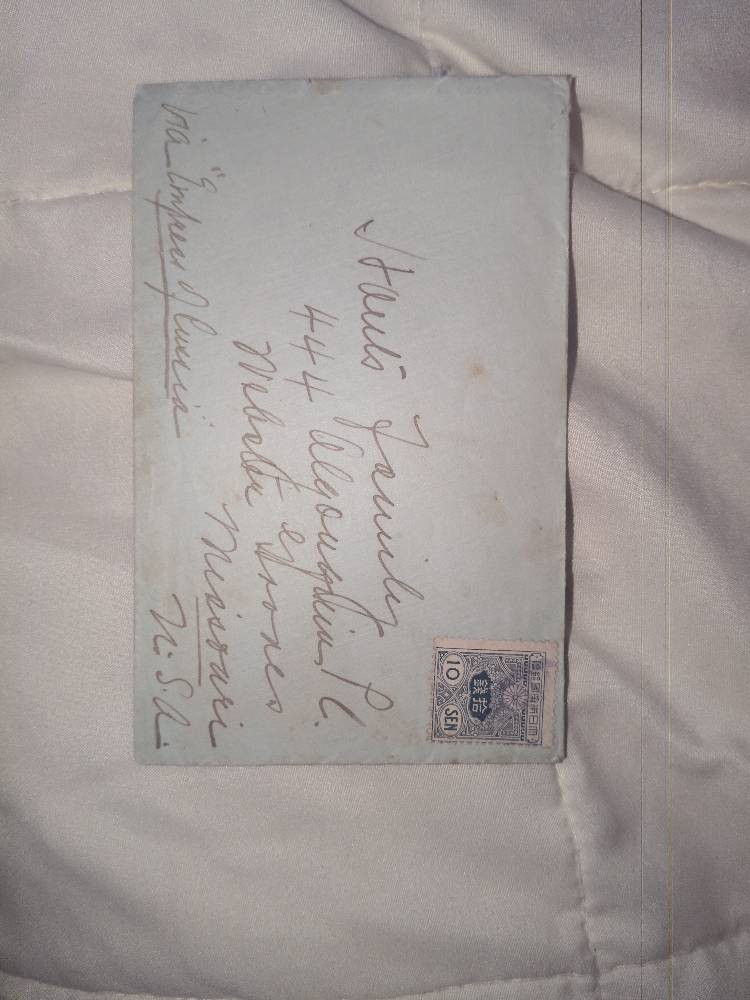 大日本帝國郵便
拾銭
10 SEN
Family
444 Algonquin Pl.
Webster Groves
Missouri
U.S.A.
Via "Empress of Russia"